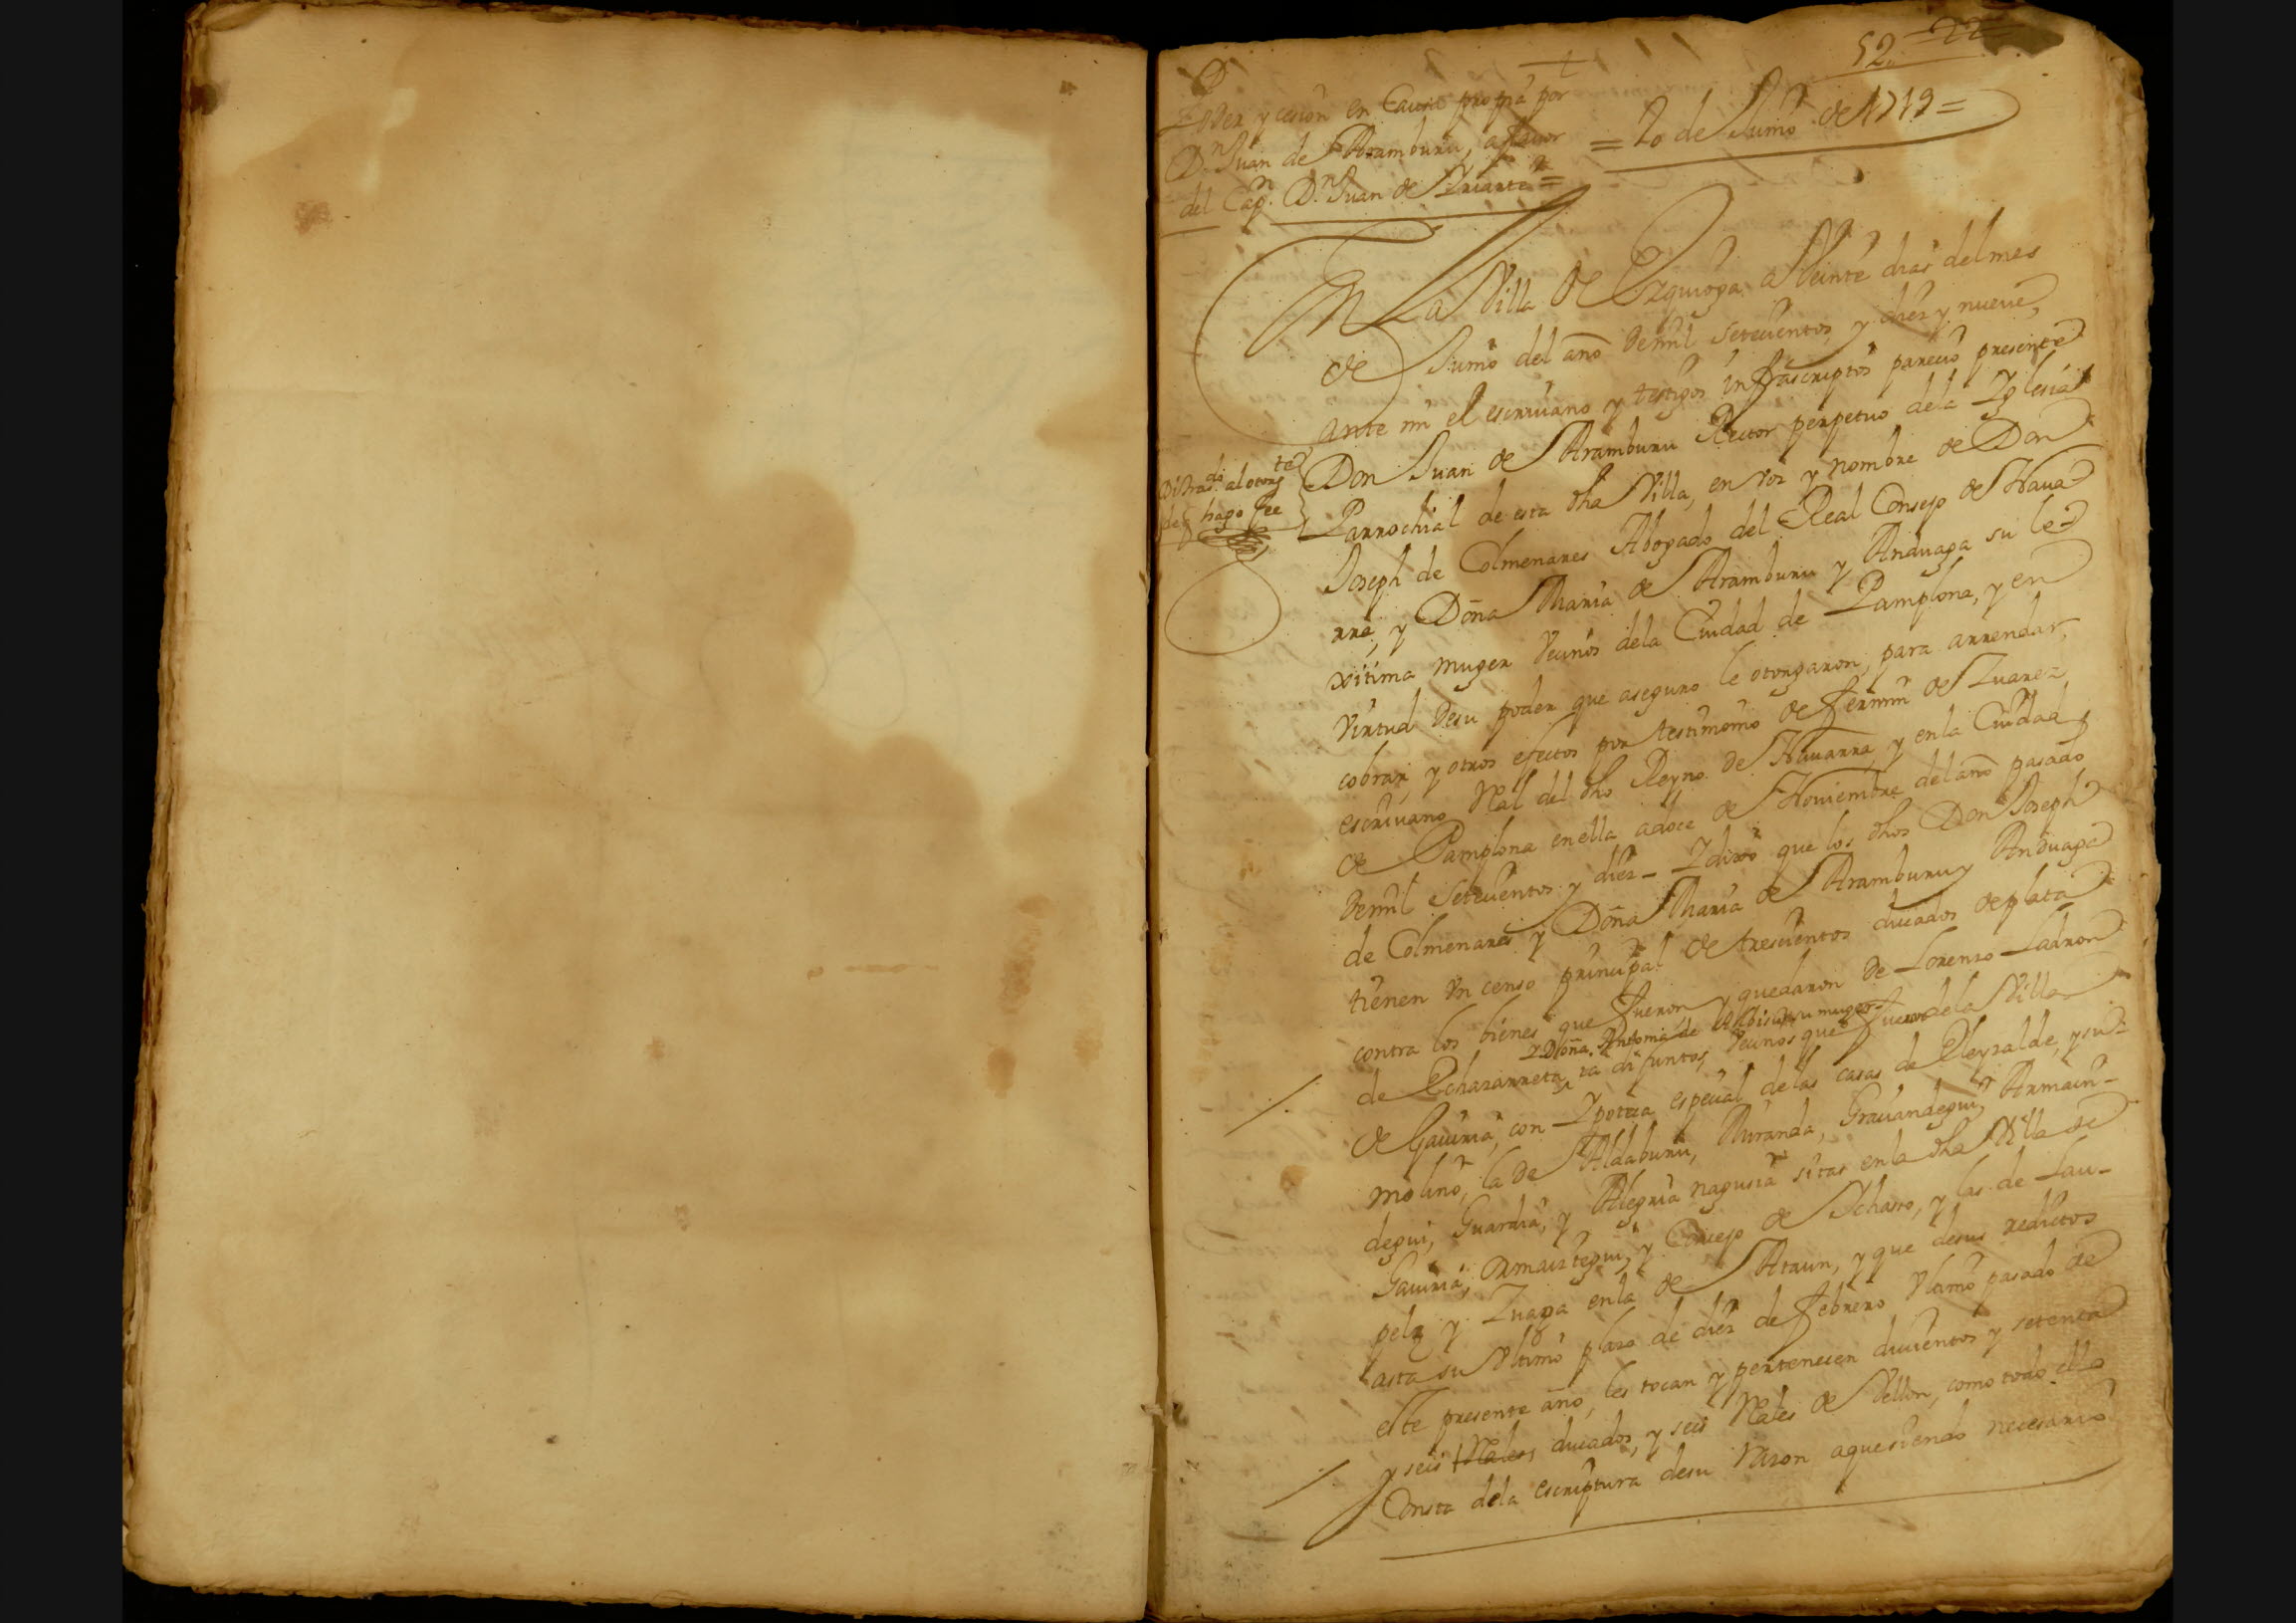 52 22
Poder y cesion en Causa propia por
D.n Juan de Aramburu, a fauor
del Cap.n D.n Juan de Yriarte =
= 20 de Junio de 1719 =
En La Villa de Ezquioga a Veinte dias del mes
de Junio del año de mil setecientos, y diez y nueue,
ante mi el escriuano y testigos infrascriptos parecio presente
Don Juan de Aramburu Rector perpetuo de la Yglesia
Parrochial de esta dha Villa, en voz y nombre de Don
di trasdo al otorgte
de q hago fee
Joseph de Colmenares Abogado del Real Consejo de Naua
rra, y Doña Maria de Aramburu y Anduaga su le-
xitima muger Vecinos dela Ciudad de Pamplona, y en
Virtud de su poder que aseguro le otorgaron, para arrendar,
cobrar, y otros efectos por testimonio de Fermin de
escriuano Real del dho Reyno de Nauarra, y en la Ciudad
de Pamplona en ella a doce de Nouiembre del año pasado
de mil setecientos y diez - Y dixo que los dhos Don Joseph
de Colmenares y Doña Maria de Aramburu y Anduaga
tienen Vn censo principal de trescientos ducados de plata
contra los bienes que fueron y quedaron de Lorenzo Ladron
y Doña Antonia de su muger
de Echazarreta, ya difuntos, Vecinos que fueron de la Villa
de Gauiria, con Ypoteca especial de las casas de Eleyzalde, y su
molino, la de Aldaburu, Miranda, Grauandegui, Armain-
degui, Guardia, y Alegria nagusia sitas en la dha Villa de
Gauiria, Ormaiztegui, y Concejo de Ychaso, y las de Lau-
pelz y Zuaga en la de Ataun, y que de sus reditos
asta su Vltimo plazo de diez de Febrero Vltimo pasado de
este presente año, les tocan y pertenecen ducientos y setenta
y seis Reales, ducados, y seis Rales de Vellon, como todo ello
Consta de la escriptura de su razon a que siendo necesario